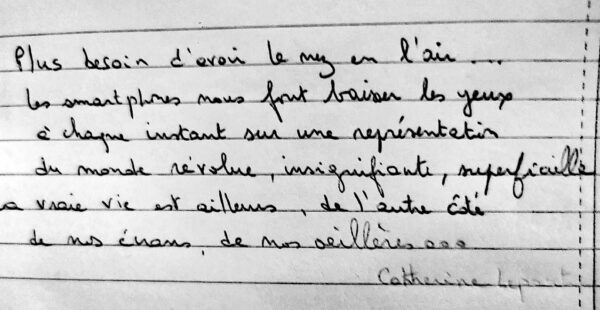 Plus besoin d'avoir le nez en l'air ....
Les smartphones nous font baisser les yeux
à chaque instant sur une représentation
du monde révolue, insignifiante, superficielle
La vraie vie est ailleurs, de l'autre côté
de nos écrans, de nos oeillères...
Catherine